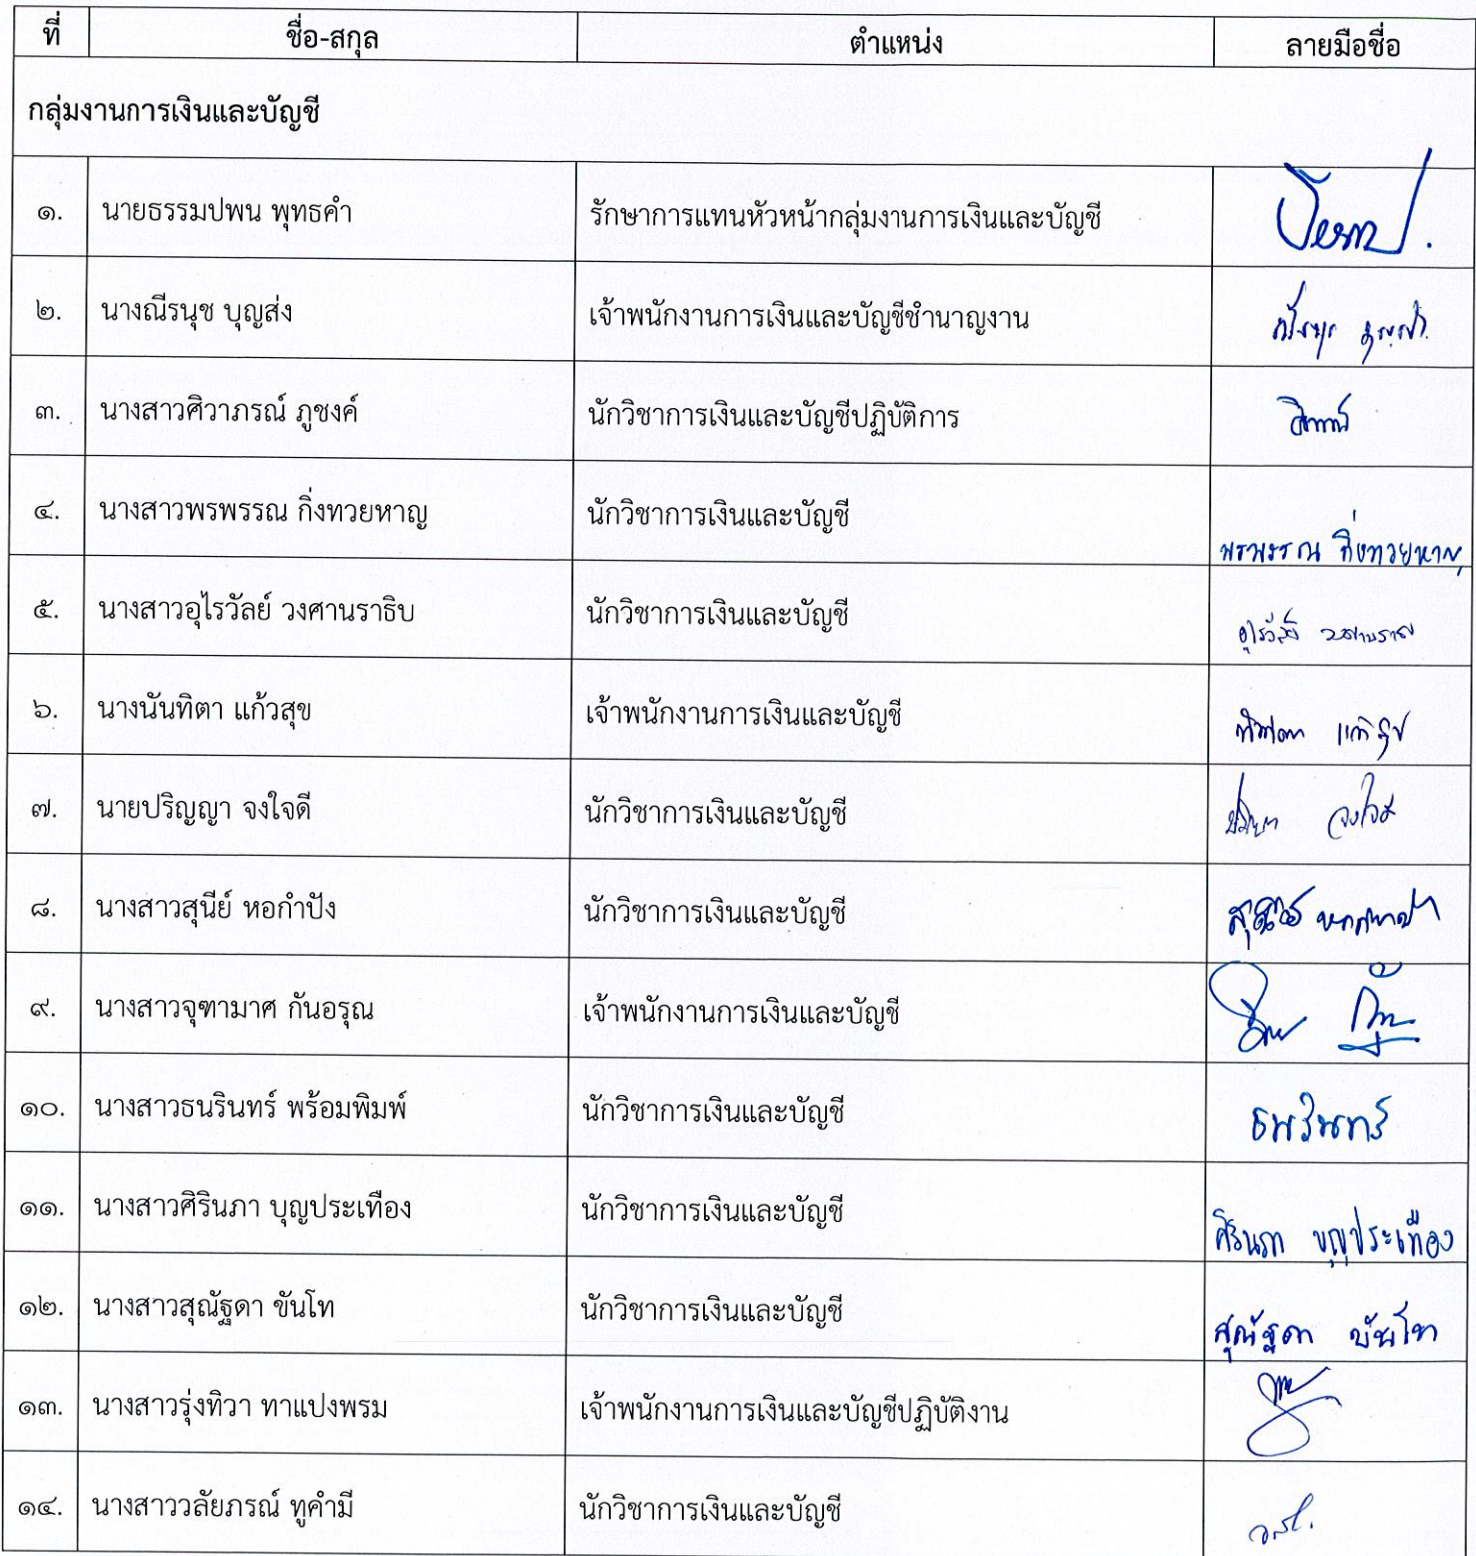 ที่ ชื่อ-สกุล ตำแหน่ง ลายมือชื่อ
กลุ่มงานการเงินและบัญชี
๑. นายธรรมปพน พุทธคำ รักษาการแทนหัวหน้ากลุ่มงานการเงินและบัญชี
๒. นางณีรนุช บุญส่ง เจ้าพนักงานการเงินและบัญชีชำนาญงาน
๓. นางสาวศิวาภรณ์ ภูชงค์ นักวิชาการเงินและบัญชีปฏิบัติการ
๔. นางสาวพรพรรณ กิ่งทวยหาญ นักวิชาการเงินและบัญชี พรพรรณ กิ่งทวยหาญ
๕. นางสาวอุไรวัลย์ วงศานราธิบ นักวิชาการเงินและบัญชี
๖. นางนันทิตา แก้วสุข เจ้าพนักงานการเงินและบัญชี
๗. นายปริญญา จงใจดี นักวิชาการเงินและบัญชี
๘. นางสาวสุนีย์ หอกำปัง นักวิชาการเงินและบัญชี
๙. นางสาวจุฑามาศ กันอรุณ เจ้าพนักงานการเงินและบัญชี
๑๐. นางสาวธนรินทร์ พร้อมพิมพ์ นักวิชาการเงินและบัญชี ธนรินทร์
๑๑. นางสาวศิรินภา บุญประเทือง นักวิชาการเงินและบัญชี ศิรินภา บุญประเทือง
๑๒. นางสาวสุณัฐดา ขันโท นักวิชาการเงินและบัญชี สุณัฐดา ขันโท
๑๓. นางสาวรุ่งทิวา ทาแปงพรม เจ้าพนักงานการเงินและบัญชีปฏิบัติงาน
๑๔. นางสาววลัยภรณ์ ทูคำมี นักวิชาการเงินและบัญชี